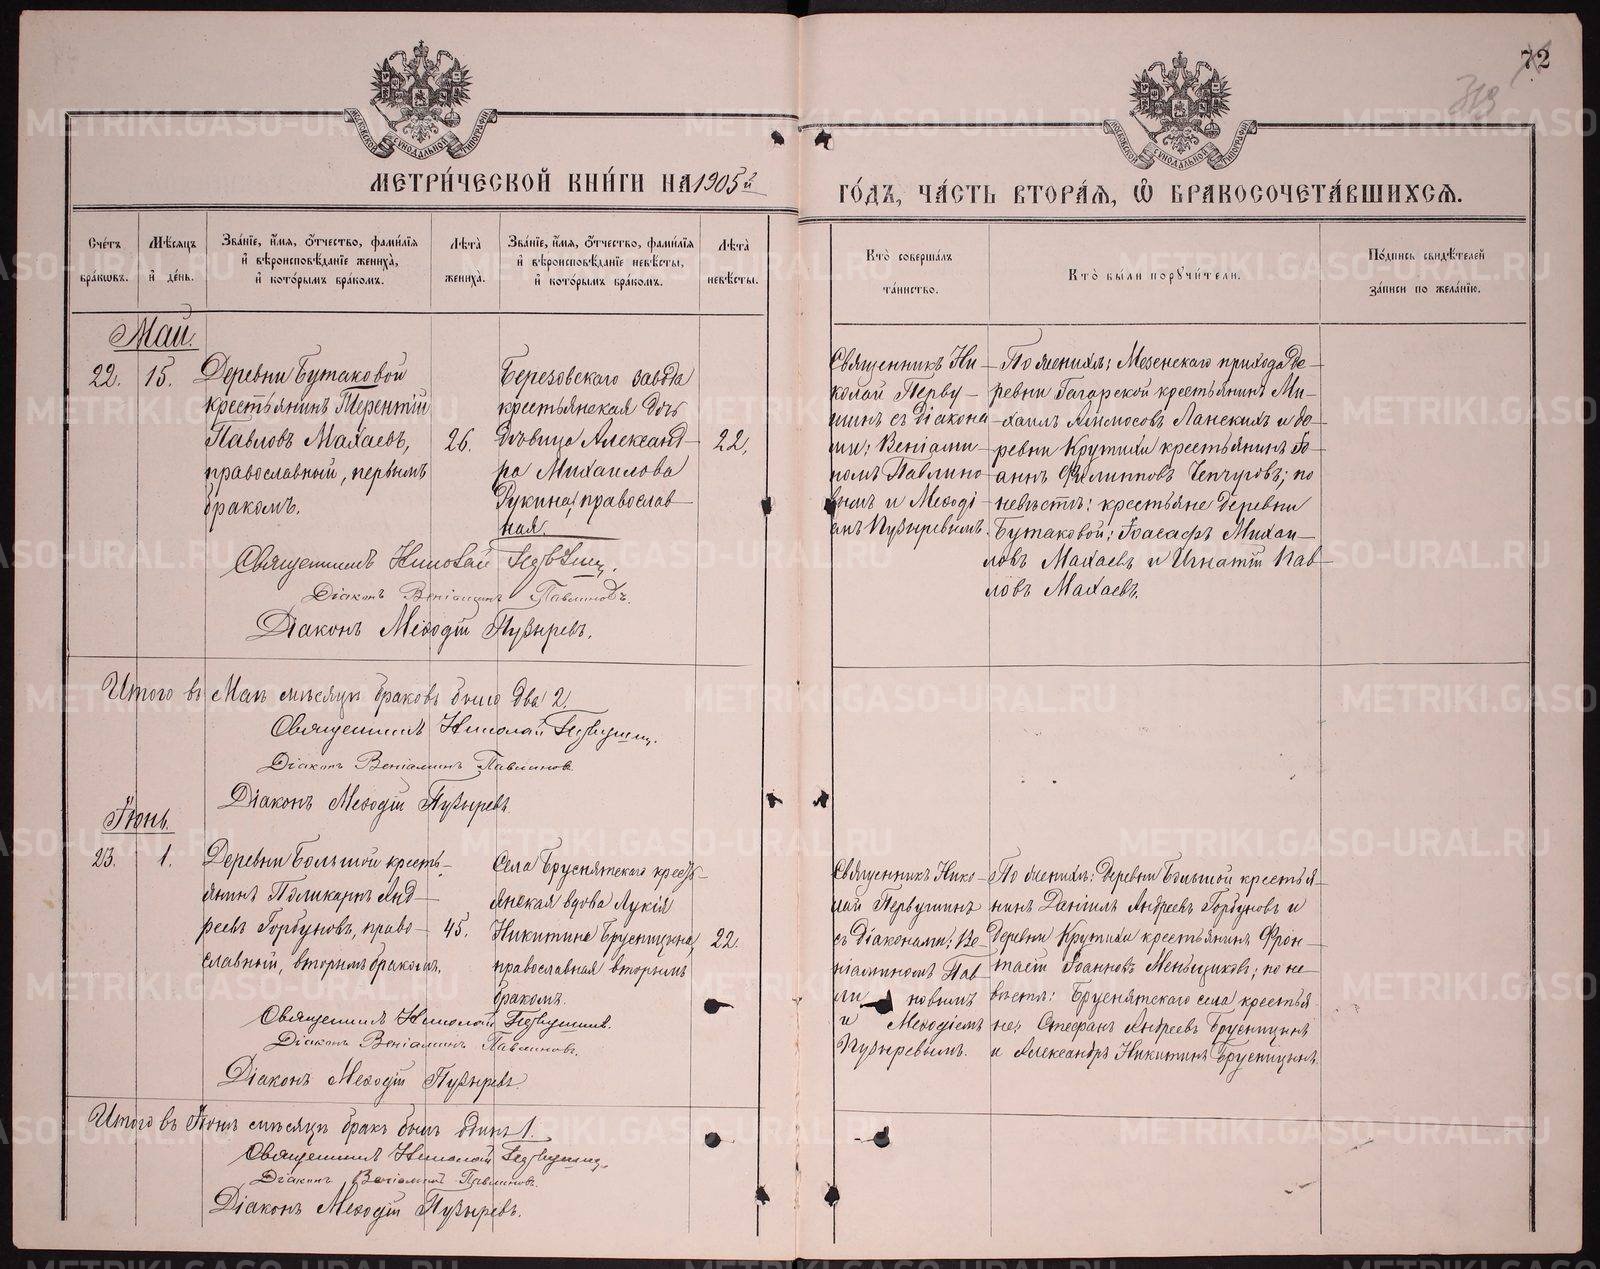 72
319
МОСКОВСКОЙ СѴНОДАЛЬНОЙ ТИПОГРАФІИ
МОСКОВСКОЙ СѴНОДАЛЬНОЙ ТИПОГРАФІИ
МЕТРИ́ЧЕСКОЙ КНИ́ГИ НА 1905й
ГО́ДЪ, ЧА́СТЬ ВТОРА́Я, Ѡ БРАКОСОЧЕТА́ВШИХСЯ.
Сче́тъ бра́кѡвъ.
Мѣ́сяцъ и де́нь.
Зва́нїе, и́мя, ѻ́тчество, фами́лїя
и вѣроисповѣ́данїе жениха̀,
и кото́рымъ бра́комъ.
Лѣта̀ жениха̀.
Зва́нїе, и́мя, ѻ́тчество, фами́лїя
и вѣроисповѣ́данїе невѣ́сты,
и кото́рымъ бра́комъ.
Лѣта̀ невѣ́сты.
Кто̀ соверша́лъ
та́инство.
Кто̀ бы́ли поручи́тели.
По́дпись свидѣ́телей
за́писи по жела́нїю.
Май.
22. 15.
Деревни Бутаковой
крестьянинъ Терентій
Павловъ Махаевъ,
православный, первымъ
бракомъ.
26.
Березовскаго завода
крестьянская дочь
дѣвица Александ-
ра Михаилова
Рукина, православ-
ная.
22.
Священникъ Ни-
колай Перву-
шинъ съ діакона-
ми: Веніами-
номъ Павлино-
вымъ и Меѳоді-
емъ Пузыревымъ.
По женихѣ: Мезенскаго прихода де-
ревни Гагарской крестьянинъ Ми-
хаилъ Аммосовъ Ланскихъ и де-
ревни Крутихи крестьянинъ Іо-
аннъ Филипповъ Чепчуговъ; по
невѣстѣ: крестьяне деревни
Бутаковой: Іоасафъ Михаи-
ловъ Махаевъ и Игнатій Пав-
ловъ Махаевъ.
Священникъ Николай Первушинъ.
Діаконъ Веніаминъ Павлиновъ.
Діаконъ Меѳодій Пузыревъ.
Итого въ Маѣ мѣсяцѣ браковъ было два 2.
Священникъ Николай Первушинъ.
Діаконъ Веніаминъ Павлиновъ
Діаконъ Меѳодій Пузыревъ
Іюнь.
23. 1.
Деревни Большой кресть-
янинъ Поликарпъ Анд-
реевъ Горбуновъ, право-
славный, вторымъ бракомъ.
45.
Села Бруснятскаго кресть-
янская вдова Лукія
Никитина Брусницына,
православная вторымъ
бракомъ.
22.
Священникъ Нико-
лай Первушинъ
съ діаконами: Ве-
ніаминомъ Пав-
ли новымъ
и Меѳодіемъ
Пузыревымъ.
По женихѣ: деревни Большой крестья-
нинъ Даніилъ Андреевъ Горбуновъ и
деревни Крутихи крестьянинъ Фрон-
тасій Іоанновъ Меньщиковъ; по не-
вѣстѣ: Бруснятскаго села крестья-
не: Стефанъ Андреевъ Брусницынъ
и Александръ Никитинъ Брусницынъ.
Священникъ Николай Первушинъ.
Діаконъ Веніаминъ Павлиновъ.
Діаконъ Меѳодій Пузыревъ
Итого въ Іюнѣ мѣсяцѣ бракъ былъ одинъ 1.
Священникъ Николай Первушинъ.
Діаконъ Веніаминъ Павлиновъ.
Діаконъ Меѳодій Пузыревъ.
METRIKI.GASO-URAL.RU